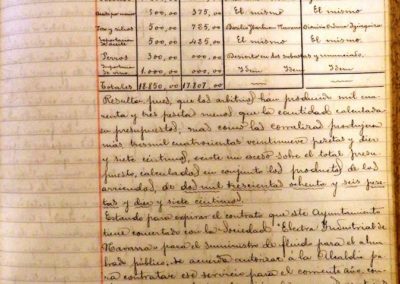 500,,00 375,,00 El mismo El mismo
500,,00 725,,00
500,,00 425,,00 El mismo El mismo
Perros 300,,00 Desierto en las subastas y renunciado.
1.000,,00 Idem Idem Idem
Totales 18.850,,00 17.807,,00
Resulta, pues, que los arbitrios han producido mil cua-
renta y tres pesetas menos que la cantidad calculada
en presupuesto, mas como la produjeron
mas tres mil cuatrocientas veintinueve pesetas y diez
y siete céntimos, existe un exceso sobre el total presu-
puesto, calculado en conjunto los productos de los
arriendos, de dos mil trescientas ochenta y seis pese-
tas y diez y siete céntimos.
Estando para expirar el contrato que este Ayuntamiento
tiene concertado con la Sociedad "Electra Industrial de
Navarra" para el suministro de fluido para el alum-
brado público, se acuerda autorizar a la Alcaldía pa-
ra contratar ese servicio para el corriente año, con